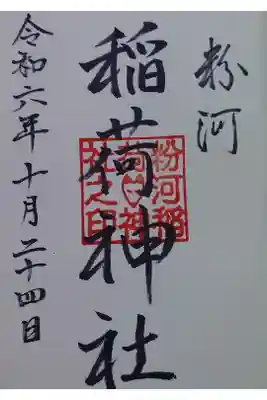 粉河
稲荷神社
粉河稲
荷♡神
社之印
令和六年十月二十四日